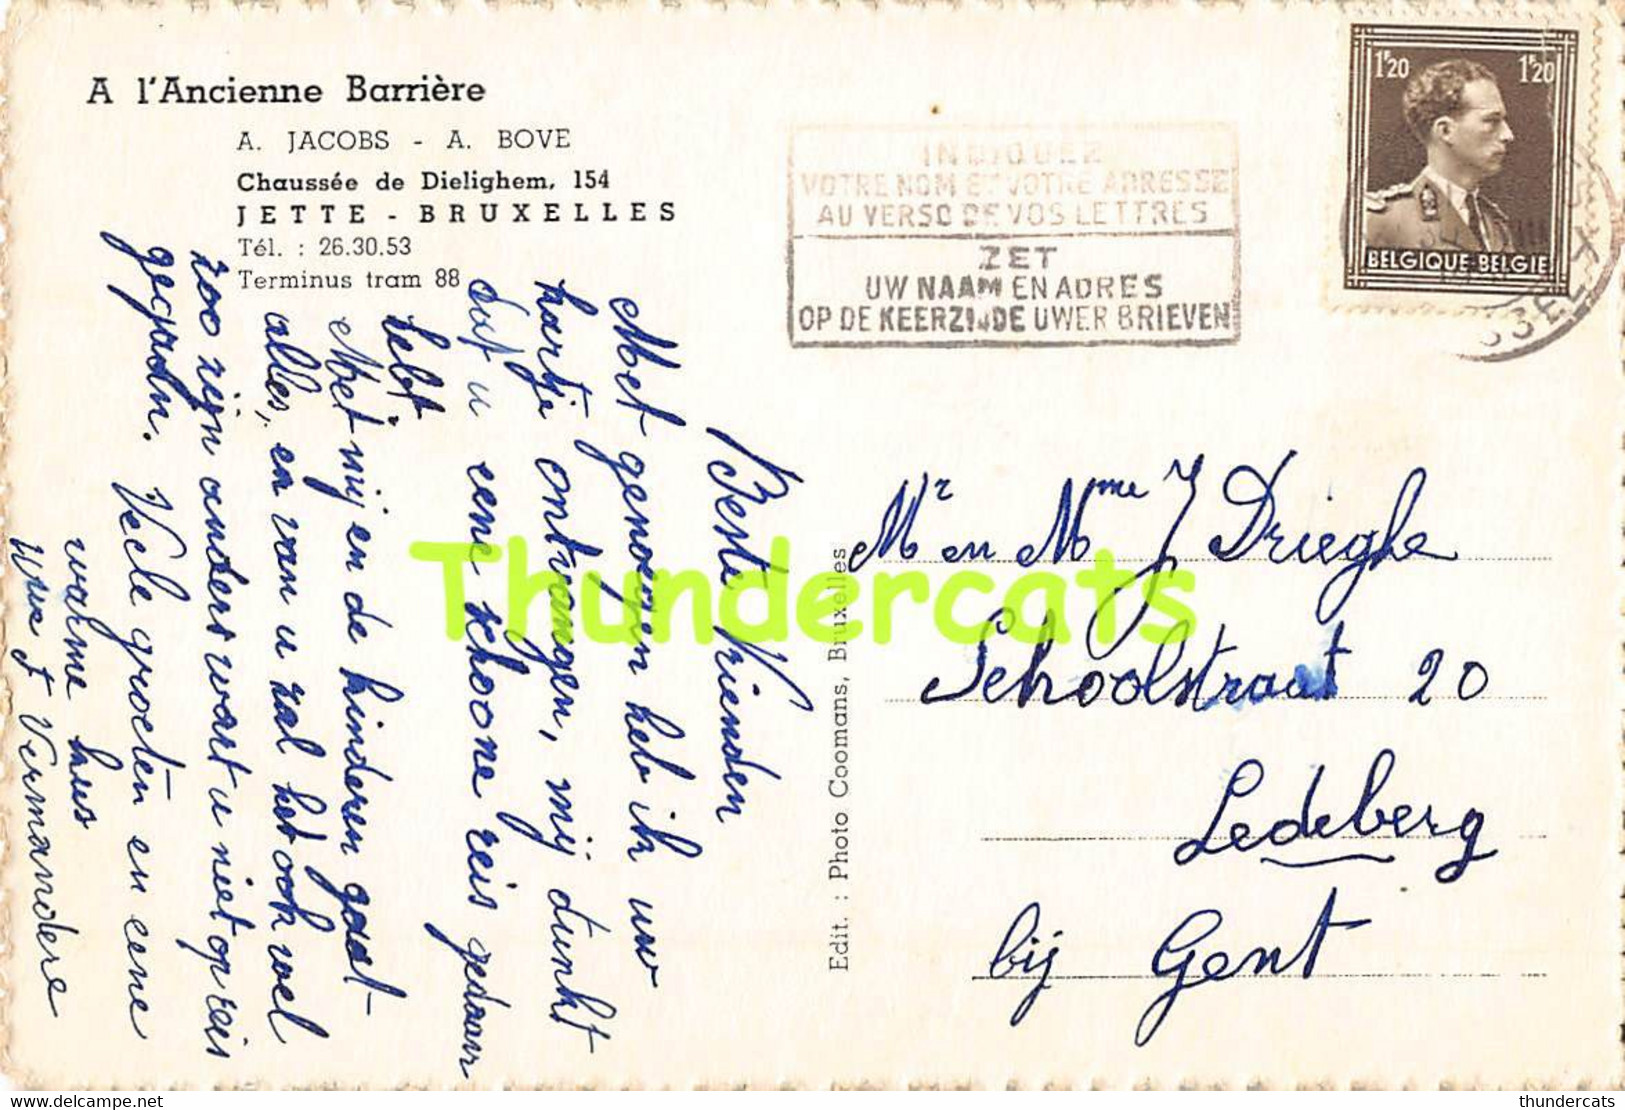 A l'Ancienne Barrière
A. JACOBS - A. BOVE
Chaussée de Dielighem, 154
JETTE - BRUXELLES
Tél. : 26.30.53
Terminus tram 88
INDIQUEZ
VOTRE NOM ET VOTRE ADRESSE
AU VERSO DE VOS LETTRES
ZET
UW NAAM EN ADRES
OP DE KEERZIJDE UWER BRIEVEN
1F20 1F20
BELGIQUE-BELGIE
Beste Vrienden
Met genoegen heb ik uw
kartje ontvangen, mij dunkt
dat u eene schoone reis gedaan
hebt
Met mij en de kinderen gaat
alles, en van u zal het ook wel
zoo zijn anders waart u niet op reis
gegaan. Veele groeten en eene
warme kus
Uwe F Vermandere
Mr en Mme J Drieghe
Schoolstraat 20
Ledeberg
bij Gent
Edit. : Photo Coomans, Bruxelles
Thundercats
www.delcampe.net
thundercats